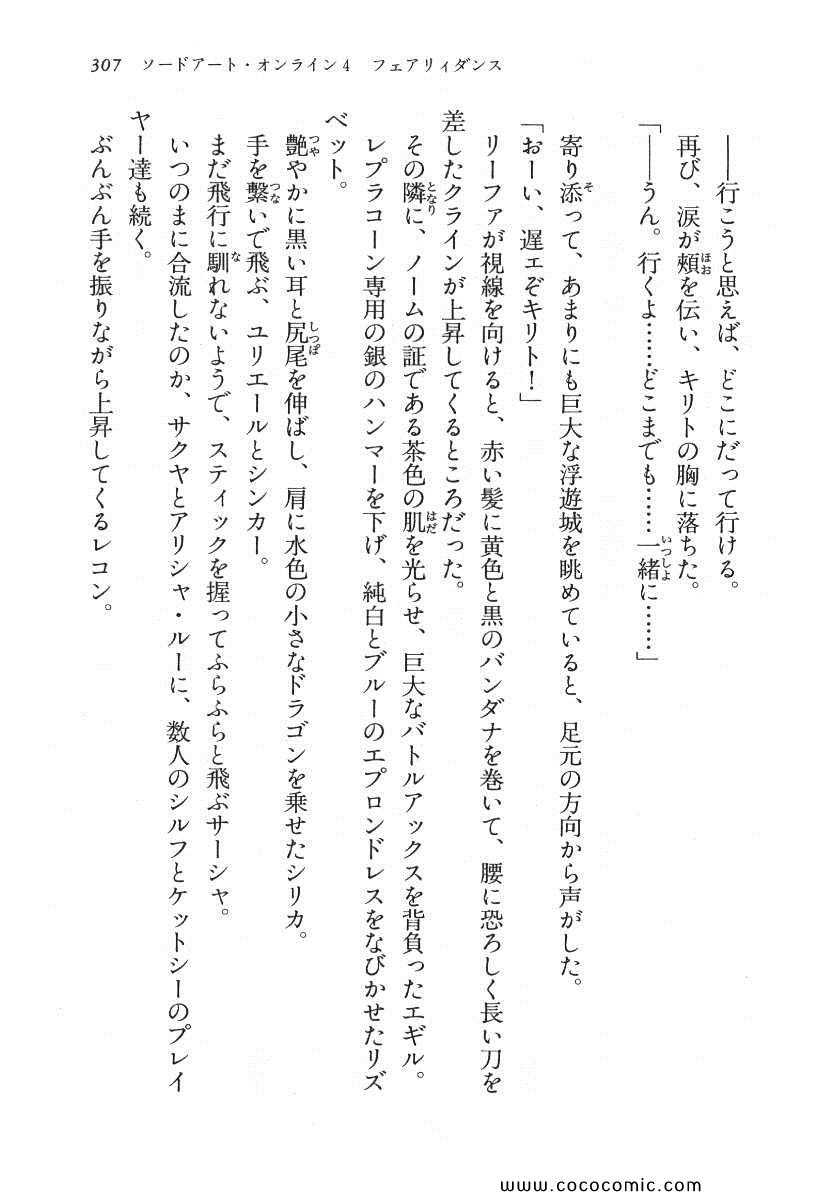 307 ソードアート・オンライン4 フェアリィダンス
――行こうと思えば、どこにだって行ける。
再び、涙が頬を伝い、キリトの胸に落ちた。
「――うん。行くよ……どこまでも……一緒に……」
寄り添って、あまりにも巨大な浮遊城を眺めていると、足元の方向から声がした。
「おーい、遅ェぞキリト！」
リーファが視線を向けると、赤い髪に黄色と黒のバンダナを巻いて、腰に恐ろしく長い刀を
差したクラインが上昇してくるところだった。
その隣に、ノームの証である茶色の肌を光らせ、巨大なバトルアックスを背負ったエギル。
レプラコーン専用の銀のハンマーを下げ、純白とブルーのエプロンドレスをなびかせたリズ
ベット。
艶やかに黒い耳と尻尾を伸ばし、肩に水色の小さなドラゴンを乗せたシリカ。
手を繋いで飛ぶ、ユリエールとシンカー。
まだ飛行に馴れないようで、スティックを握ってふらふらと飛ぶサーシャ。
いつのまに合流したのか、サクヤとアリシャ・ルーに、数人のシルフとケットシーのプレイ
ヤー達も続く。
ぶんぶん手を振りながら上昇してくるレコン。
www.cococomic.com